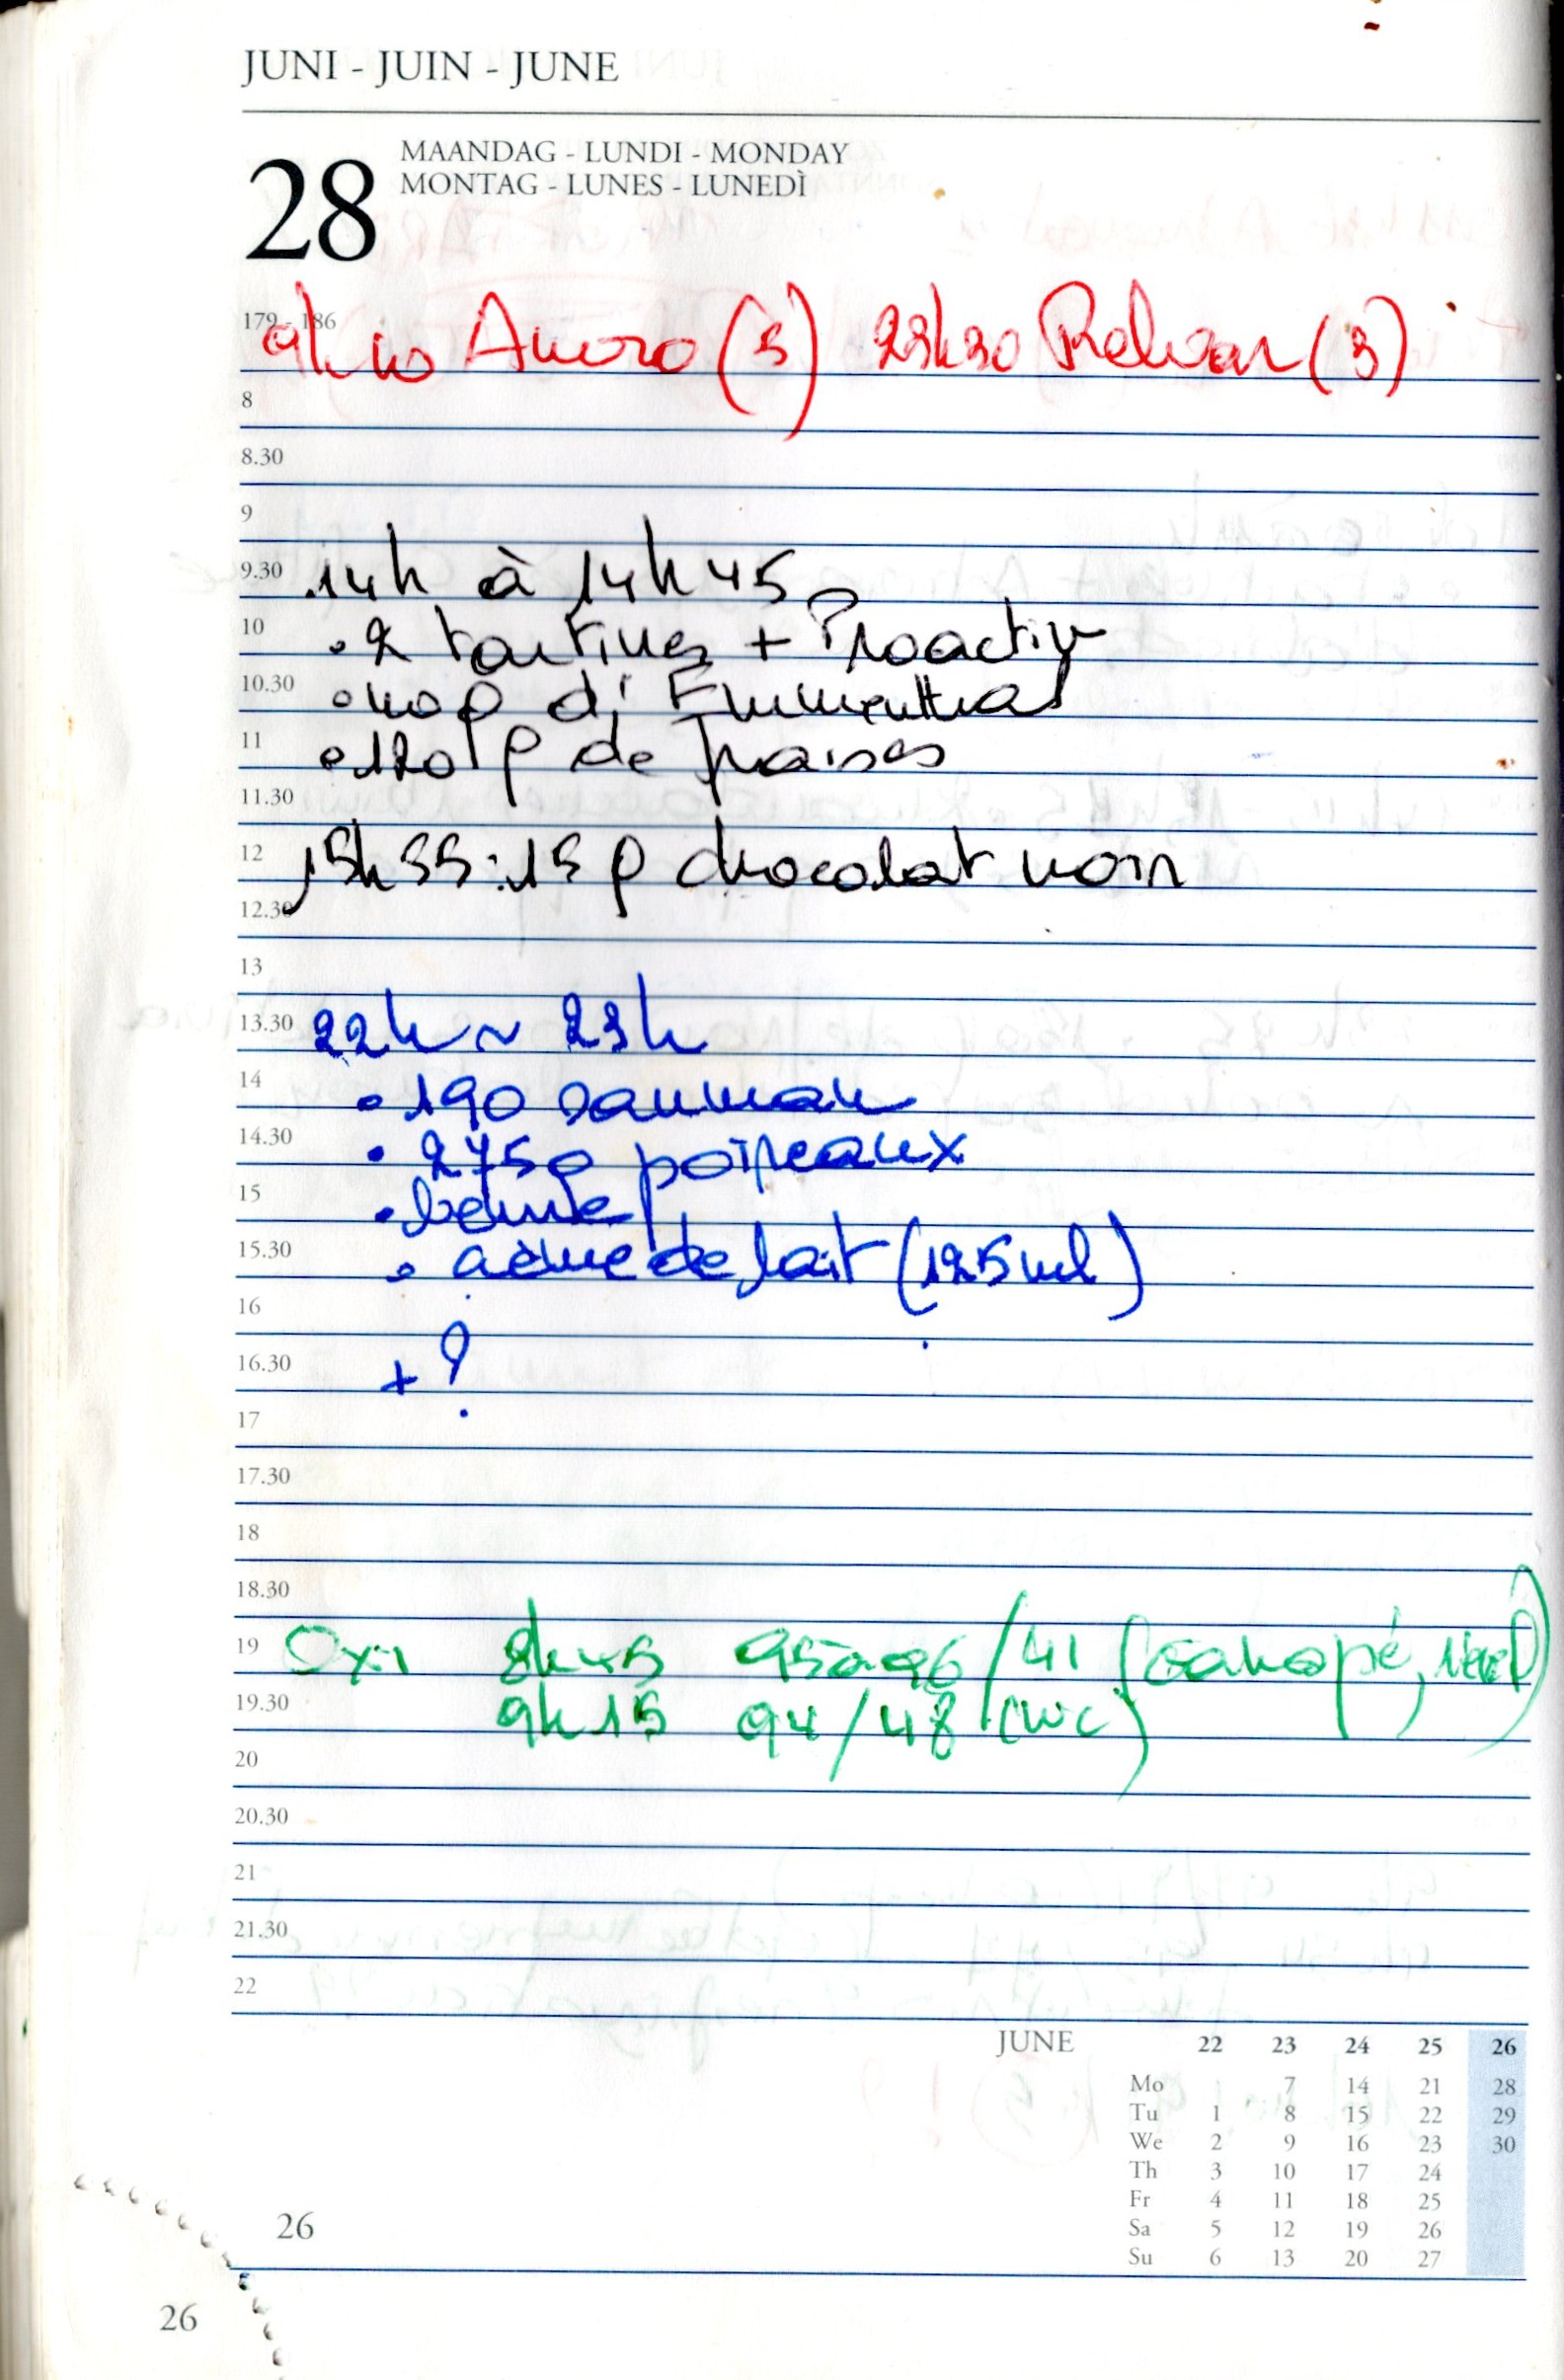 JUNI - JUIN - JUNE
28
MAANDAG - LUNDI - MONDAY
MONTAG - LUNES - LUNEDÌ
179 - 186
9h40 Anoro (3) 23h30 Relvar (3)
8
8.30
9
9.30 14h à 14h45
10 • 2 tartines + Proactiv
10.30 • 40g d'Emmenthal
11 • 120g de fraises
11.30
12 15h55 : 15g chocolat noir
12.30
13
13.30 22h ~ 23h
14 • 190 saumon
14.30 • 275g poireaux
15 • beurre
15.30 • crème de lait (125ml)
16
16.30 + ?
17
17.30
18
18.30
19 Oxi 8h45 95à96/41 (canapé, rével)
19.30 9h15 94/48 (WC)
20
20.30
21
21.30
22
JUNE 22 23 24 25 26
Mo 7 14 21 28
Tu 1 8 15 22 29
We 2 9 16 23 30
Th 3 10 17 24
Fr 4 11 18 25
Sa 5 12 19 26
Su 6 13 20 27
26
26